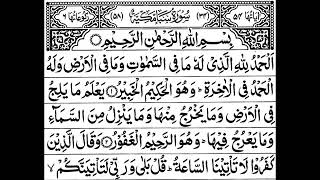 اٰیاتها ٥٤ (٣٤) سُوْرَةُ سَبَاٍ مَّكِّیَّةٌ (٥٨) رکوعاتها ٦
بِسْمِ اللّٰهِ الرَّحْمٰنِ الرَّحِیْمِ
اَلْحَمْدُ لِلّٰهِ الَّذِیْ لَهٗ مَا فِی السَّمٰوٰتِ وَمَا فِی الْاَرْضِ وَلَهُ
الْحَمْدُ فِی الْاٰخِرَةِ ؕ وَهُوَ الْحَكِیْمُ الْخَبِیْرُ ۝ یَعْلَمُ مَا یَلِجُ
فِی الْاَرْضِ وَمَا یَخْرُجُ مِنْهَا وَمَا یَنْزِلُ مِنَ السَّمَآءِ
وَمَا یَعْرُجُ فِیْهَا ؕ وَهُوَ الرَّحِیْمُ الْغَفُوْرُ ۝ وَقَالَ الَّذِیْنَ
كَفَرُوْا لَا تَاْتِیْنَا السَّاعَةُ ؕ قُلْ بَلٰی وَرَبِّیْ لَتَاْتِیَنَّكُمْ ۙ